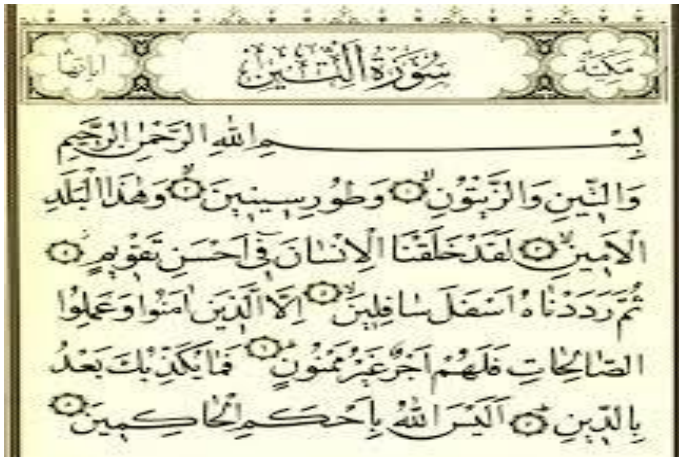 مَكِّيَّة سُورَةُ التِّينِ اياتها
بِسْمِ اللهِ الرَّحْمٰنِ الرَّحِيمِ
وَالتِّينِ وَالزَّيْتُونِ ۙ وَطُورِ سِينِينَ ۙ وَهٰذَا الْبَلَدِ
الْاَمِينِ ۙ لَقَدْ خَلَقْنَا الْاِنْسَانَ فِي اَحْسَنِ تَقْوِيمٍ
ثُمَّ رَدَدْنَاهُ اَسْفَلَ سَافِلِينَ ۙ اِلَّا الَّذِينَ اٰمَنُوا وَعَمِلُوا
الصَّالِحَاتِ فَلَهُمْ اَجْرٌ غَيْرُ مَمْنُونٍ فَمَا يُكَذِّبُكَ بَعْدُ
بِالدِّينِ اَلَيْسَ اللهُ بِاَحْكَمِ الْحَاكِمِينَ